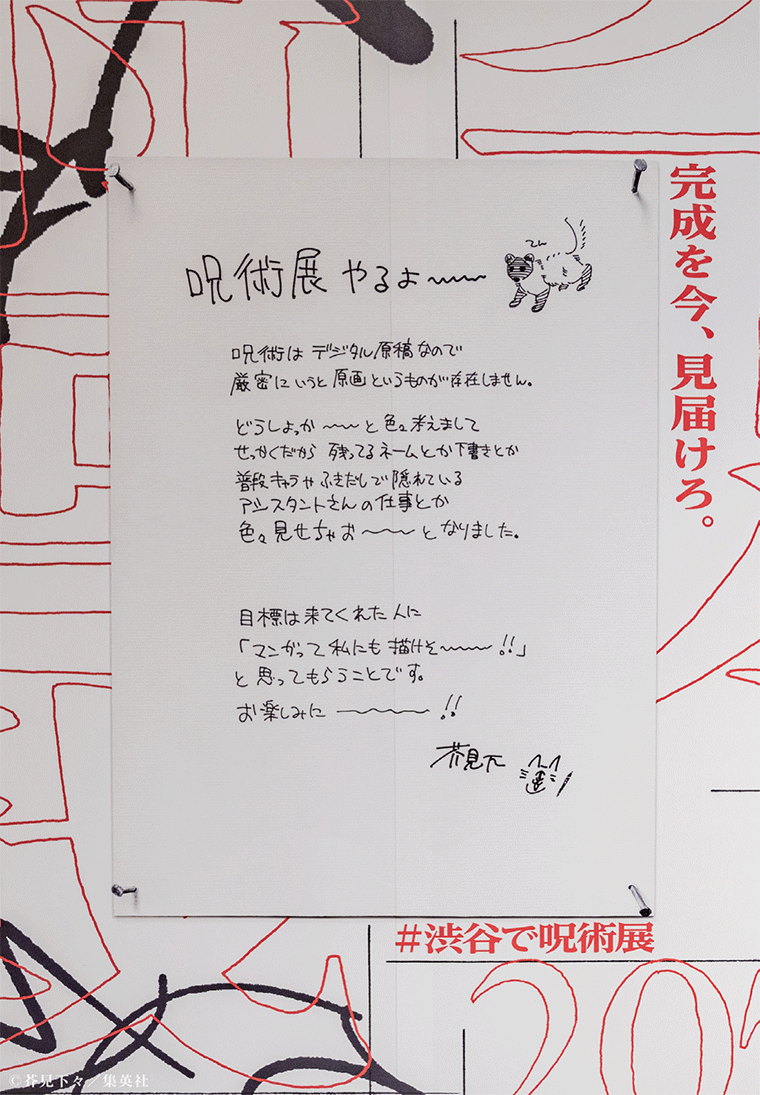 呪術展 やるよ〜〜〜
てん
呪術は デジタル原稿なので
厳密にいうと 原画というものが存在しません。
どうしよっか〜〜〜と 色々考えまして
せっかくだから 残ってるネームとか下書きとか
普段キャラや ふきだしで隠れている
アシスタントさんの仕事とか
色々見せちゃお〜〜〜〜となりました。
目標は来てくれた人に
「マンガって私にも描けそ〜〜〜〜!!」
と思ってもらうことです。
お楽しみに〜〜〜〜〜!!
芥見下々
完成を今、見届けろ。
#渋谷で呪術展
©芥見下々／集英社